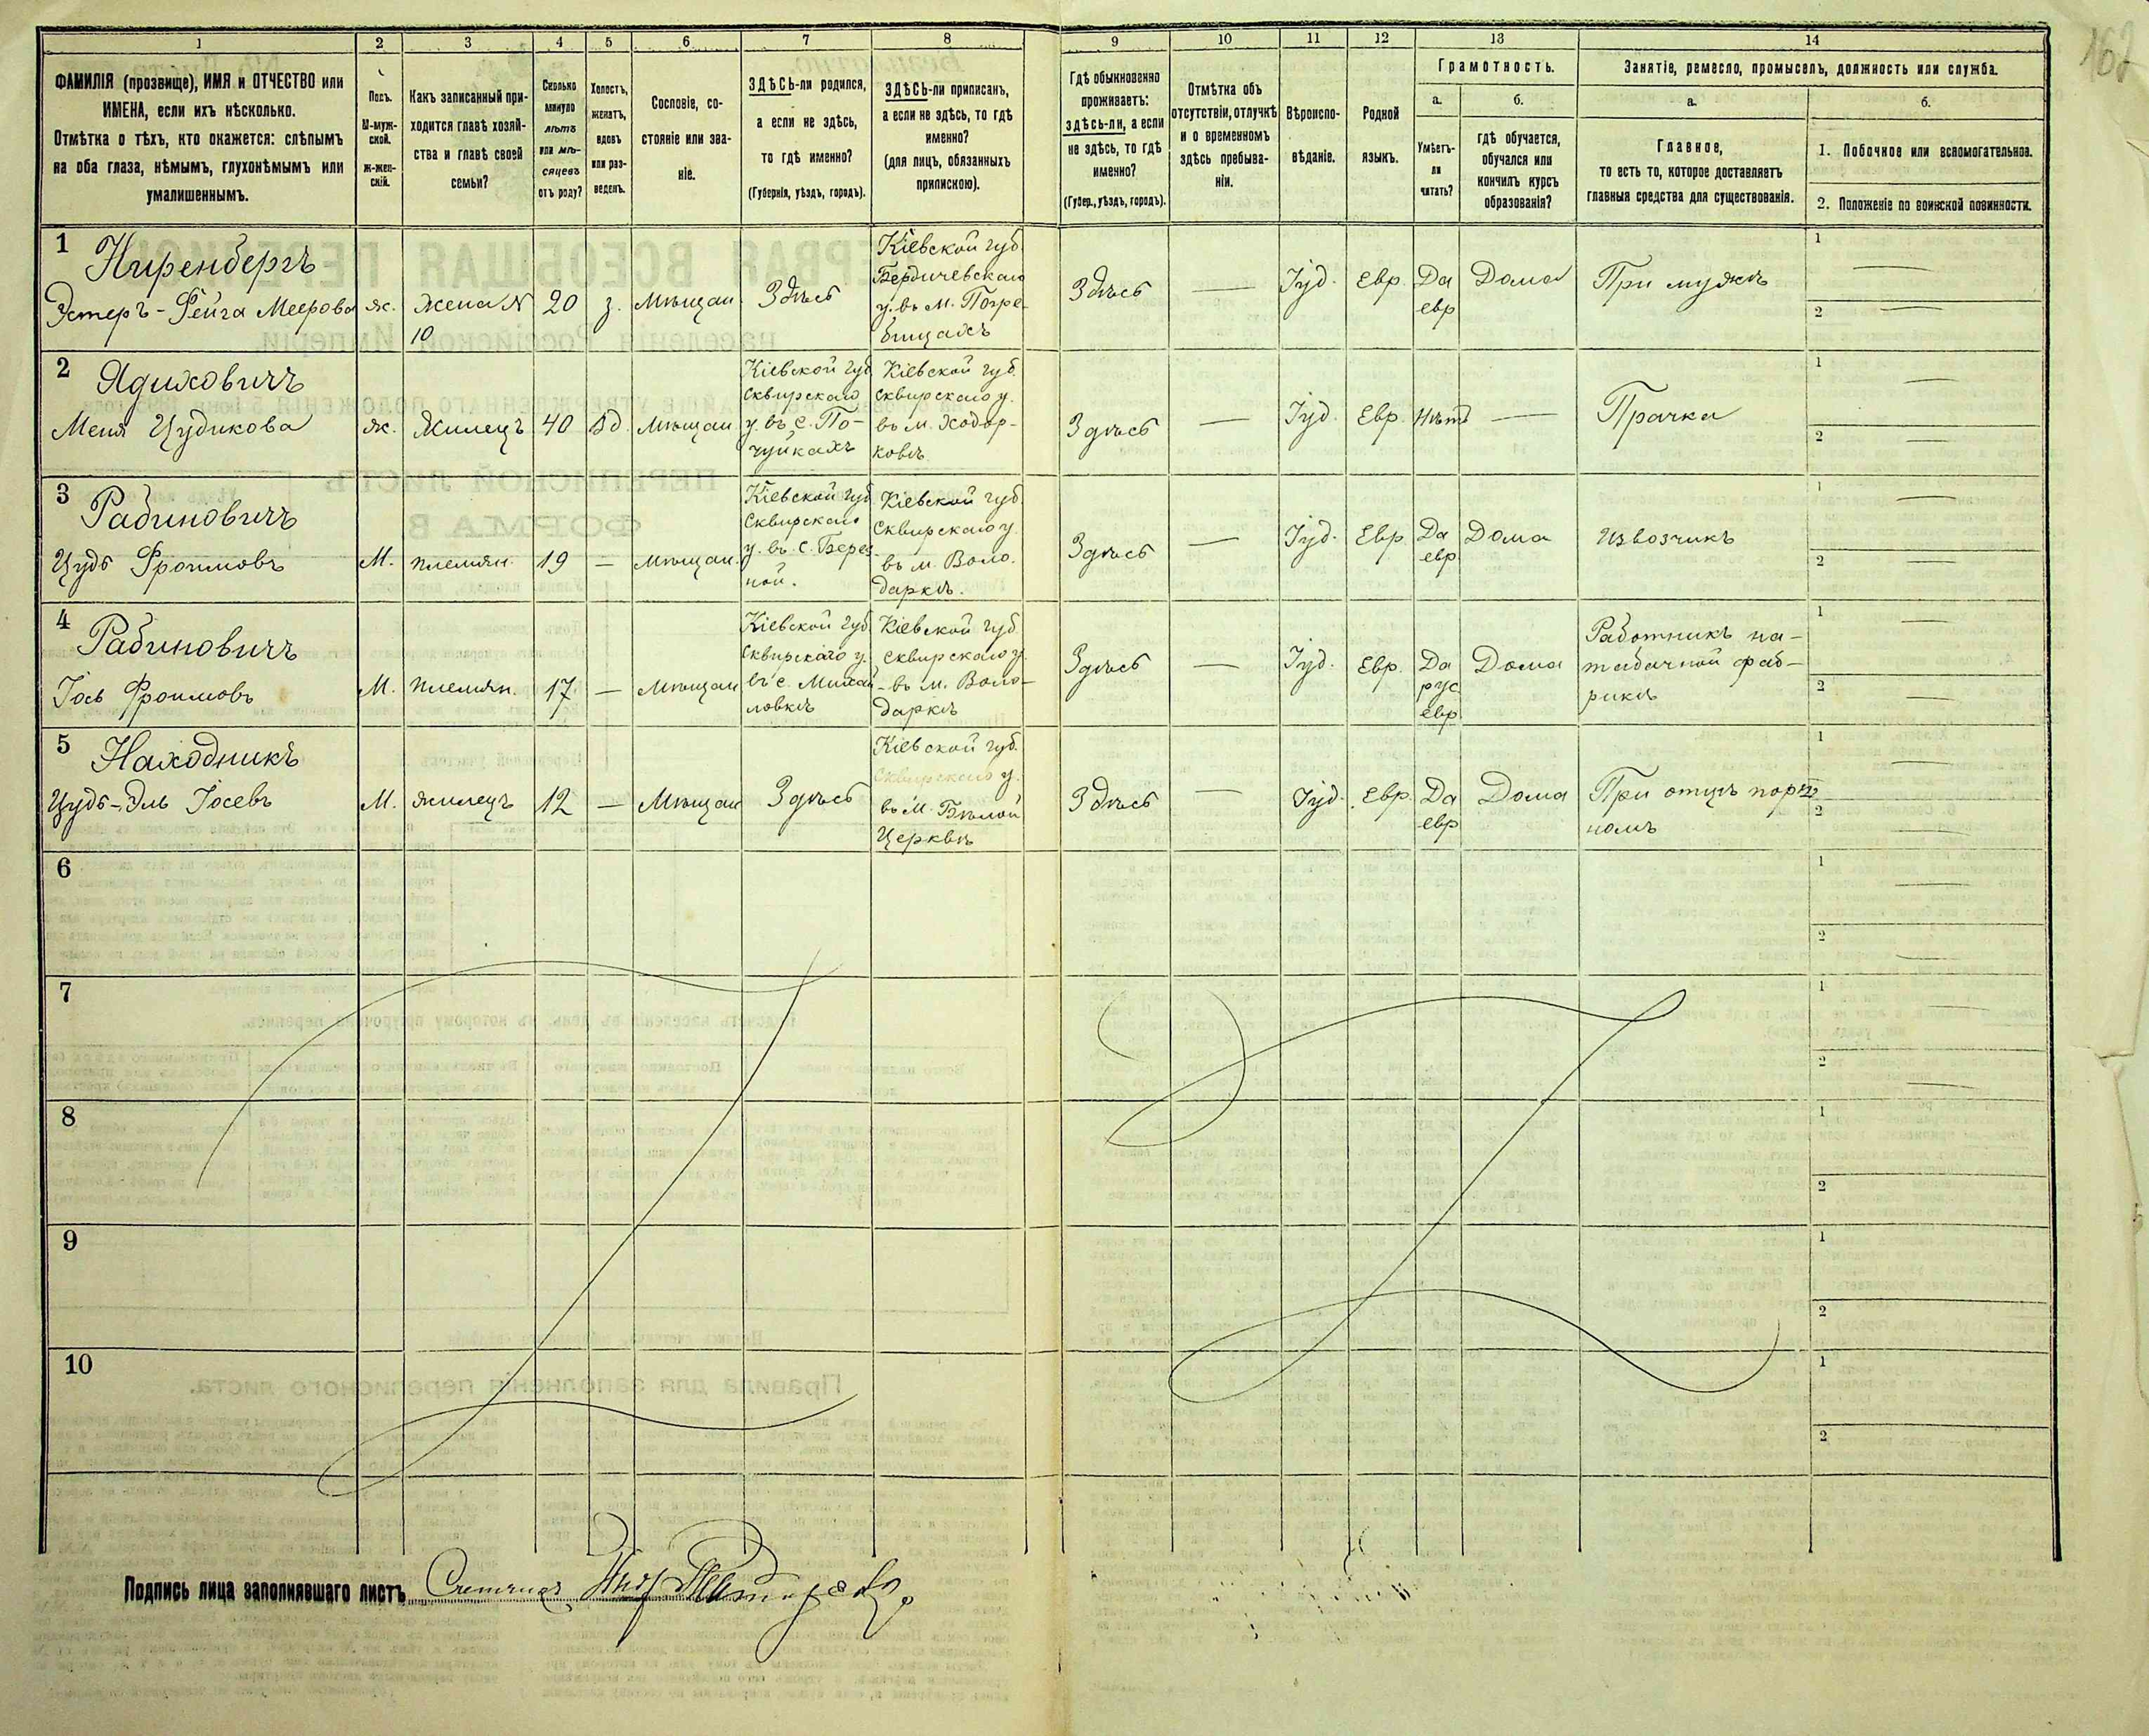 162
1 2 3 4 5 6 7 8 9 10 11 12 13 14
ФАМИЛІЯ (прозвище), ИМЯ и ОТЧЕСТВО или
ИМЕНА, если ихъ нѣсколько.
Отмѣтка о тѣхъ, кто окажется: слѣпымъ
на оба глаза, нѣмымъ, глухонѣмымъ или
умалишеннымъ.
Полъ.
М-муж-
ской.
Ж-жен-
скій.
Какъ записанный при-
ходится главѣ хозяй-
ства и главѣ своей
семьи?
Сколько
минуло
лѣтъ
или мѣ-
сяцевъ
отъ роду?
Холостъ,
женатъ,
вдовъ
или раз-
веденъ.
Сословіе, со-
стояніе или зва-
ніе.
ЗДѢСЬ-ли родился,
а если не здѣсь,
то гдѣ именно?
(Губернія, уѣздъ, городъ).
ЗДѢСЬ-ли приписанъ,
а если не здѣсь, то гдѣ
именно?
(для лицъ, обязанныхъ
припискою).
Гдѣ обыкновенно
проживаетъ:
здѣсь-ли, а если
не здѣсь, то гдѣ
именно?
(Губер., уѣздъ, городъ).
Отмѣтка объ
отсутствіи, отлучкѣ
и о временномъ
здѣсь пребыва-
ніи.
Вѣроиспо-
вѣданіе.
Родной
языкъ.
Грамотность.
а.
Умѣетъ-
ли
читать?
б.
гдѣ обучается,
обучался или
кончилъ курсъ
образованія?
Занятіе, ремесло, промыселъ, должность или служба.
а.
Главное,
то есть то, которое доставляетъ
главныя средства для существованія.
б.
1. Побочное или вспомогательное.
2. Положеніе по воинской повинности.
1
Ниренбергъ
Эстеръ-Фейга Меерова
ж.
жена №
10
20
з.
мѣщан.
Здѣсь
Кіевской губ.
Бердичевскаго
у. въ м. Погре-
бищахъ
Здѣсь
—
Іуд.
Евр.
Да
евр
Дома
При мужѣ
1 —
2 —
2
Ядиховичъ
Меня Цудикова
ж.
Жилецъ
40
вд.
мѣщан
Кіевской губ.
Сквирскаго
у. въ с. По-
чуйкахъ
Кіевской губ.
Сквирскаго у.
въ м. Ходор-
ковѣ
Здѣсь
—
Іуд.
Евр.
Нѣтъ
—
Прачка
1 —
2 —
3
Рабиновичъ
Цудь Фроимовъ
М.
племян.
19
—
мѣщан.
Кіевской губ
Сквирскаго
у. въ с. Берез-
ной.
Кіевской губ
Сквирскаго у
въ м. Воло-
даркѣ.
Здѣсь
—
Іуд.
Евр
Да
евр
Дома
Извозчикъ
1 —
2 —
4
Рабиновичъ
Іось Фроимовъ
М.
племян.
17
—
мѣщан
Кіевской губ
Сквирскаго у.
въ с. Михай-
ловкѣ
Кіевской губ
Сквирскаго у.
въ м. Воло-
даркѣ
Здѣсь
—
Іуд.
Евр.
Да
рус
евр
Дома
Работникъ на-
табачной фаб-
рикѣ
1 —
2 —
5
Находникъ
Цудь-Эль Іосевъ
М.
жилецъ
12
—
Мѣщан
Здѣсь
Кіевской губ.
Сквирскаго у.
въ м. Бѣлой
Церквѣ
Здѣсь
—
Іуд.
Евр.
Да
евр
Дома
При отцѣ порт-
номъ
1 —
2 —
6
1 —
2 —
7
1 —
2 —
8
1
2
9
1
2
10
1
2
Подпись лица заполнявшаго листъ Счетчикъ